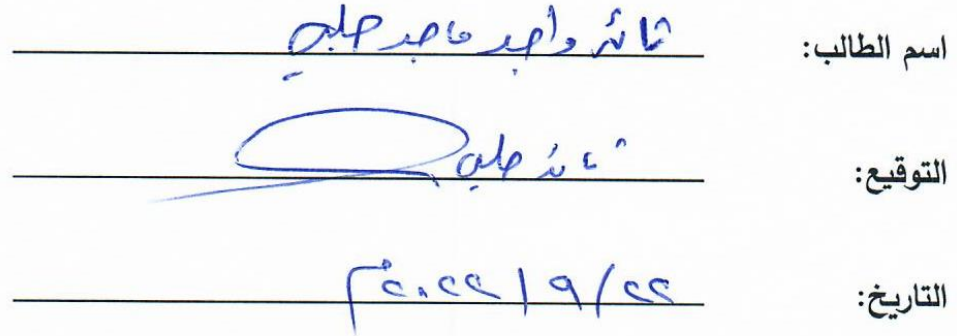 اسم الطالب: ثائر واجد ماجد حلبي
التوقيع: ثائر حلبي
التاريخ: ٢٢/٩/٢٠٢٢م